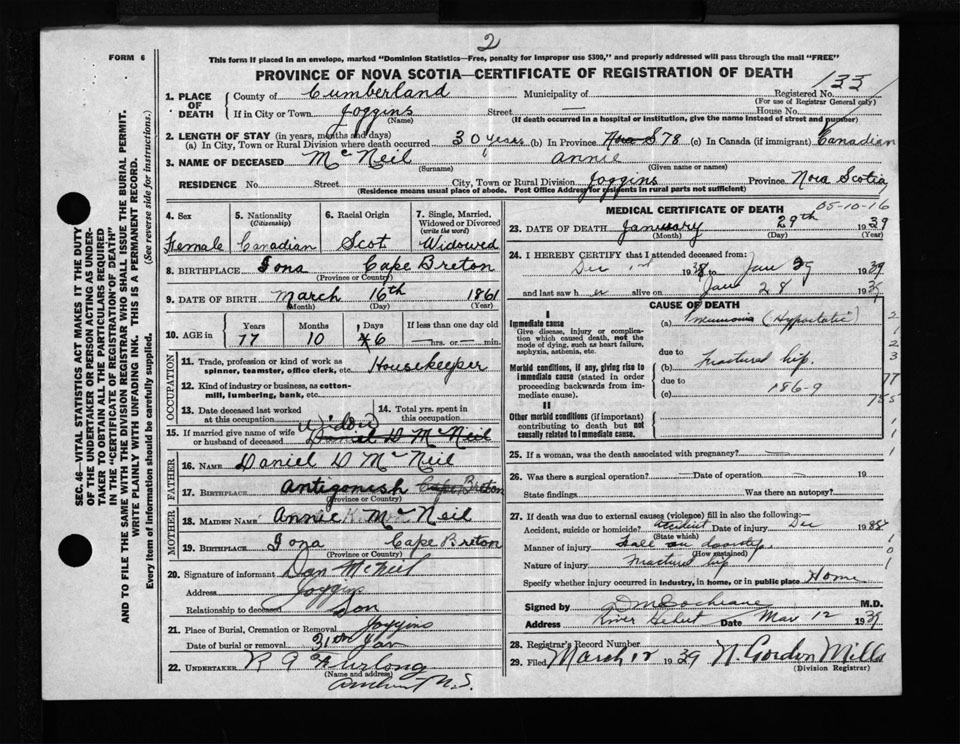 2
FORM 6
This form if placed in an envelope, marked "Dominion Statistics—Free, penalty for improper use $300," and properly addressed will pass through the mail "FREE"
PROVINCE OF NOVA SCOTIA—CERTIFICATE OF REGISTRATION OF DEATH
1. PLACE OF DEATH County of Cumberland Municipality of Registered No. 133
(For use of Registrar General only)
If in City or Town Joggins Street — House No.
(Name) (If death occurred in a hospital or institution, give the name instead of street and number)
2. LENGTH OF STAY (in years, months and days)
(a) In City, Town or Rural Division where death occurred 30 years (b) In Province 78 (c) In Canada (if immigrant) Canadian
3. NAME OF DECEASED McNeil Annie
(Surname) (Given name or names)
RESIDENCE No. Street City, Town or Rural Division Joggins Province Nova Scotia
(Residence means usual place of abode. Post Office Address for residents in rural parts not sufficient)
4. Sex Female
5. Nationality (Citizenship) Canadian
6. Racial Origin Scot
7. Single, Married, Widowed or Divorced (write the word) Widowed
8. BIRTHPLACE Iona Cape Breton
(Province or Country)
9. DATE OF BIRTH March 16th 1861
(Month) (Day) (Year)
10. AGE in Years Months Days If less than one day old
77 10 hrs. or min.
OCCUPATION
11. Trade, profession or kind of work as spinner, teamster, office clerk, etc. Housekeeper
12. Kind of industry or business, as cotton-mill, lumbering, bank, etc.
13. Date deceased last worked at this occupation
14. Total yrs. spent in this occupation
Widow
15. If married give name of wife or husband of deceased Daniel D McNeil
FATHER
16. NAME Daniel D McNeil
17. BIRTHPLACE Antigonish Cape Breton
(Province or Country)
MOTHER
18. MAIDEN NAME Annie K. McNeil
19. BIRTHPLACE Iona Cape Breton
(Province or Country)
20. Signature of informant Dan McNeil
Address Joggins
Relationship to deceased Son
21. Place of Burial, Cremation or Removal Joggins
Date of burial or removal 31st Jan
22. UNDERTAKER R A Furlong
(Name and address)
Amherst N.S.
MEDICAL CERTIFICATE OF DEATH 05-10-16
23. DATE OF DEATH January 29th 1939
(Month) (Day) (Year)
24. I HEREBY CERTIFY that I attended deceased from:
Dec 1st 1938 to Jan 29 1939
and last saw her alive on Jan 28 1939
CAUSE OF DEATH
I
Immediate cause
Give disease, injury or complication which caused death, not the mode of dying, such as heart failure, asphyxia, asthenia, etc.
(a) Pneumonia (Hypostatic)
due to
(b) Fractured hip
Morbid conditions, if any, giving rise to immediate cause (stated in order proceeding backwards from immediate cause).
due to
(c) 186-9
II
Other morbid conditions (if important) contributing to death but not causally related to immediate cause.
25. If a woman, was the death associated with pregnancy?
26. Was there a surgical operation? Date of operation 19
State findings Was there an autopsy?
27. If death was due to external causes (violence) fill in also the following:—
Accident, suicide or homicide? accident Date of injury Dec 1938
(State which)
Manner of injury Fall on doorstep
(How sustained)
Nature of injury Fractured hip
Specify whether injury occurred in industry, in home, or in public place Home
Signed by DM Cochrane M.D.
Address River Hebert Date Mar 12 1939
28. Registrar's Record Number
29. Filed March 12 1939 N. Gordon Mills
(Division Registrar)
SEC. 46—VITAL STATISTICS ACT MAKES IT THE DUTY
OF THE UNDERTAKER OR PERSON ACTING AS UNDER-
TAKER TO OBTAIN ALL THE PARTICULARS REQUIRED
IN THE "CERTIFICATE OF REGISTRATION OF DEATH"
AND TO FILE THE SAME WITH THE DIVISION REGISTRAR WHO SHALL ISSUE THE BURIAL PERMIT.
WRITE PLAINLY WITH UNFADING INK. THIS IS A PERMANENT RECORD.
Every item of information should be carefully supplied. (See reverse side for instructions.)